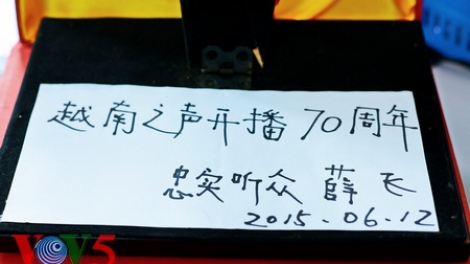 越南之声开播70周年
忠实听众 薛飞
2015.06.12
VOV5